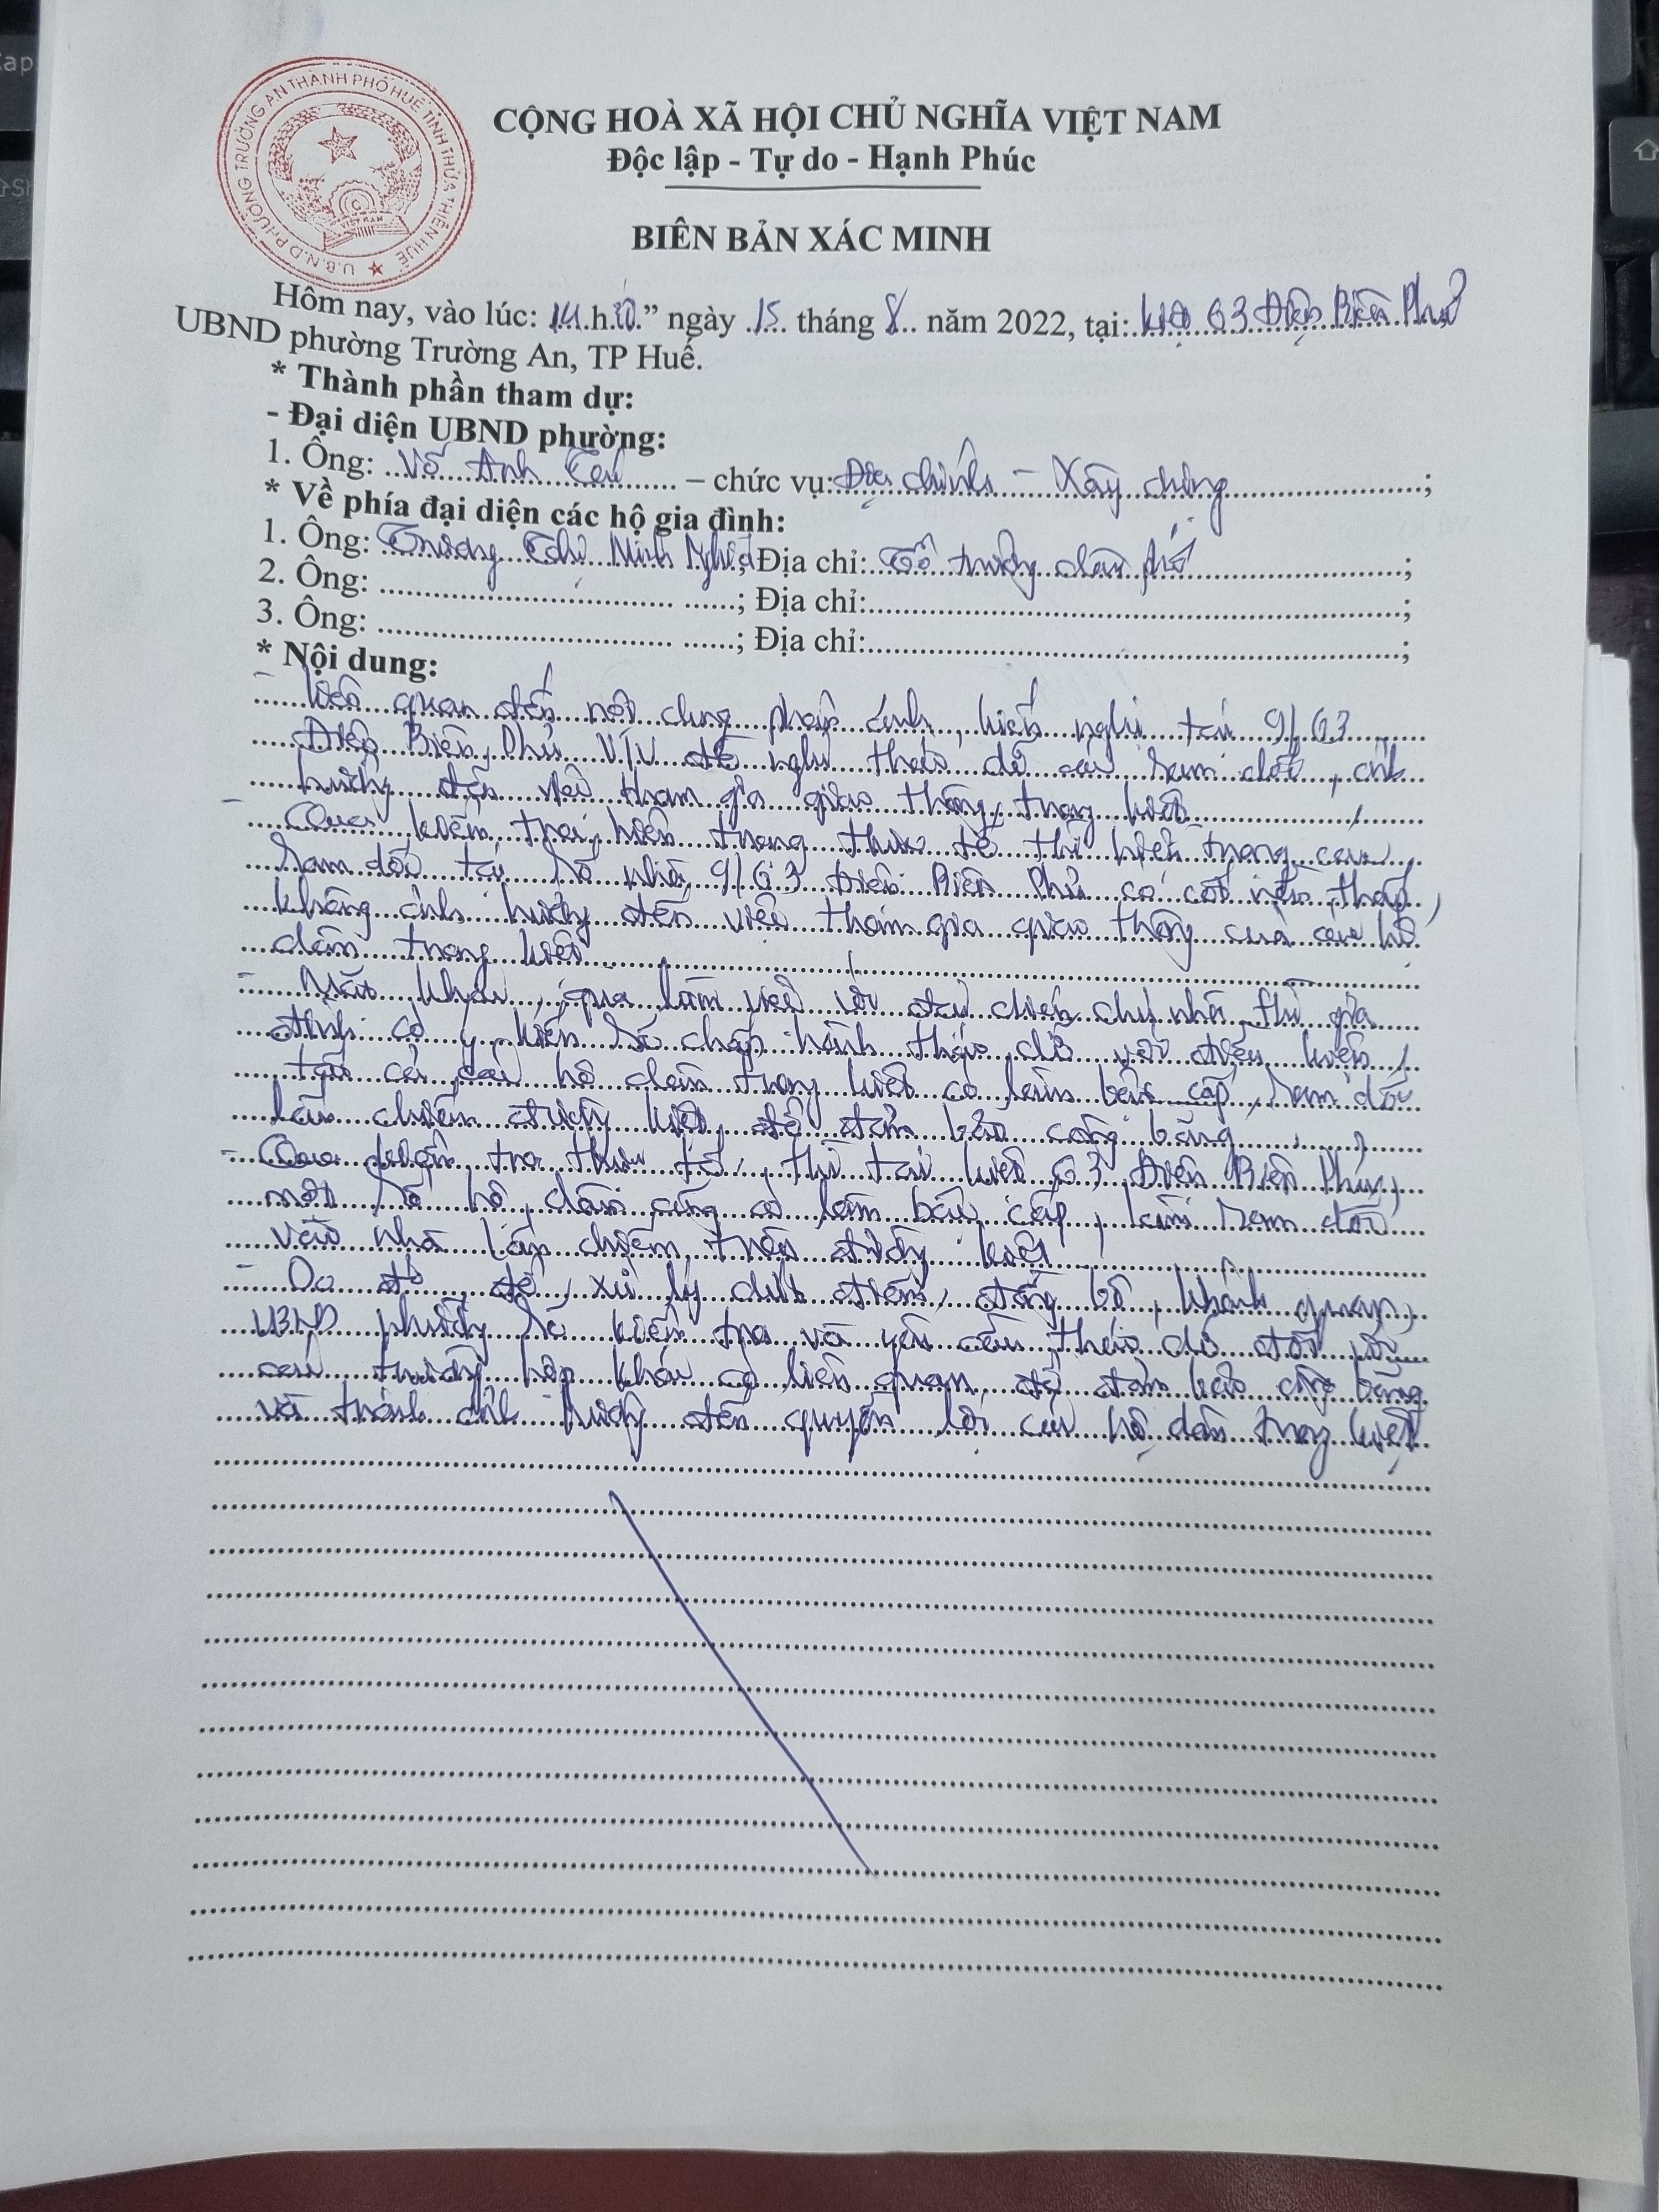 U.B.N.D PHƯỜNG TRƯỜNG AN THÀNH PHỐ HUẾ TỈNH THỪA THIÊN HUẾ
VIỆT NAM
CỘNG HOÀ XÃ HỘI CHỦ NGHĨA VIỆT NAM
Độc lập - Tự do - Hạnh Phúc
BIÊN BẢN XÁC MINH
Hôm nay, vào lúc: 14.h.” ngày 15 tháng 8 năm 2022, tại: kiệt 63 Điện Biên Phủ
UBND phường Trường An, TP Huế.
* Thành phần tham dự:
- Đại diện UBND phường:
1. Ông: Võ Anh – chức vụ: Địa chính - Xây dựng;
* Về phía đại diện các hộ gia đình:
1. Ông: Trương Thị Minh; Địa chỉ: Tổ trưởng dân phố;
2. Ông: ; Địa chỉ: ;
3. Ông: ; Địa chỉ: ;
* Nội dung:
- Liên quan đến nội dung phản ánh, kiến nghị tại 9/63
Điện Biên Phủ V/v đề nghị tháo dỡ các ram dốc, ảnh
hưởng đến việc tham gia giao thông trong kiệt
- Qua kiểm tra hiện trạng thực tế thì hiện trạng các
ram dốc tại số nhà 9/63 Điện Biên Phủ có cốt nền thấp,
không ảnh hưởng đến việc tham gia giao thông của các hộ
dân trong kiệt
- Mặt khác, qua làm việc với đại diện chủ nhà thì gia
đình có ý kiến sẽ chấp hành tháo dỡ với điều kiện
tất cả các hộ dân trong kiệt có làm bậc cấp, ram dốc
lấn chiếm đường kiệt, để đảm bảo công bằng
- Qua kiểm tra thực tế, thì tại kiệt 63 Điện Biên Phủ,
một số hộ dân cũng có làm bậc cấp, làm ram dốc
vào nhà lấn chiếm trên đường kiệt
- Do đó, để xử lý dứt điểm, đồng bộ, khách quan,
UBND phường sẽ kiểm tra và yêu cầu tháo dỡ đối với
các trường hợp khác có liên quan, để đảm bảo công bằng
và tránh ảnh hưởng đến quyền lợi các hộ dân trong kiệt